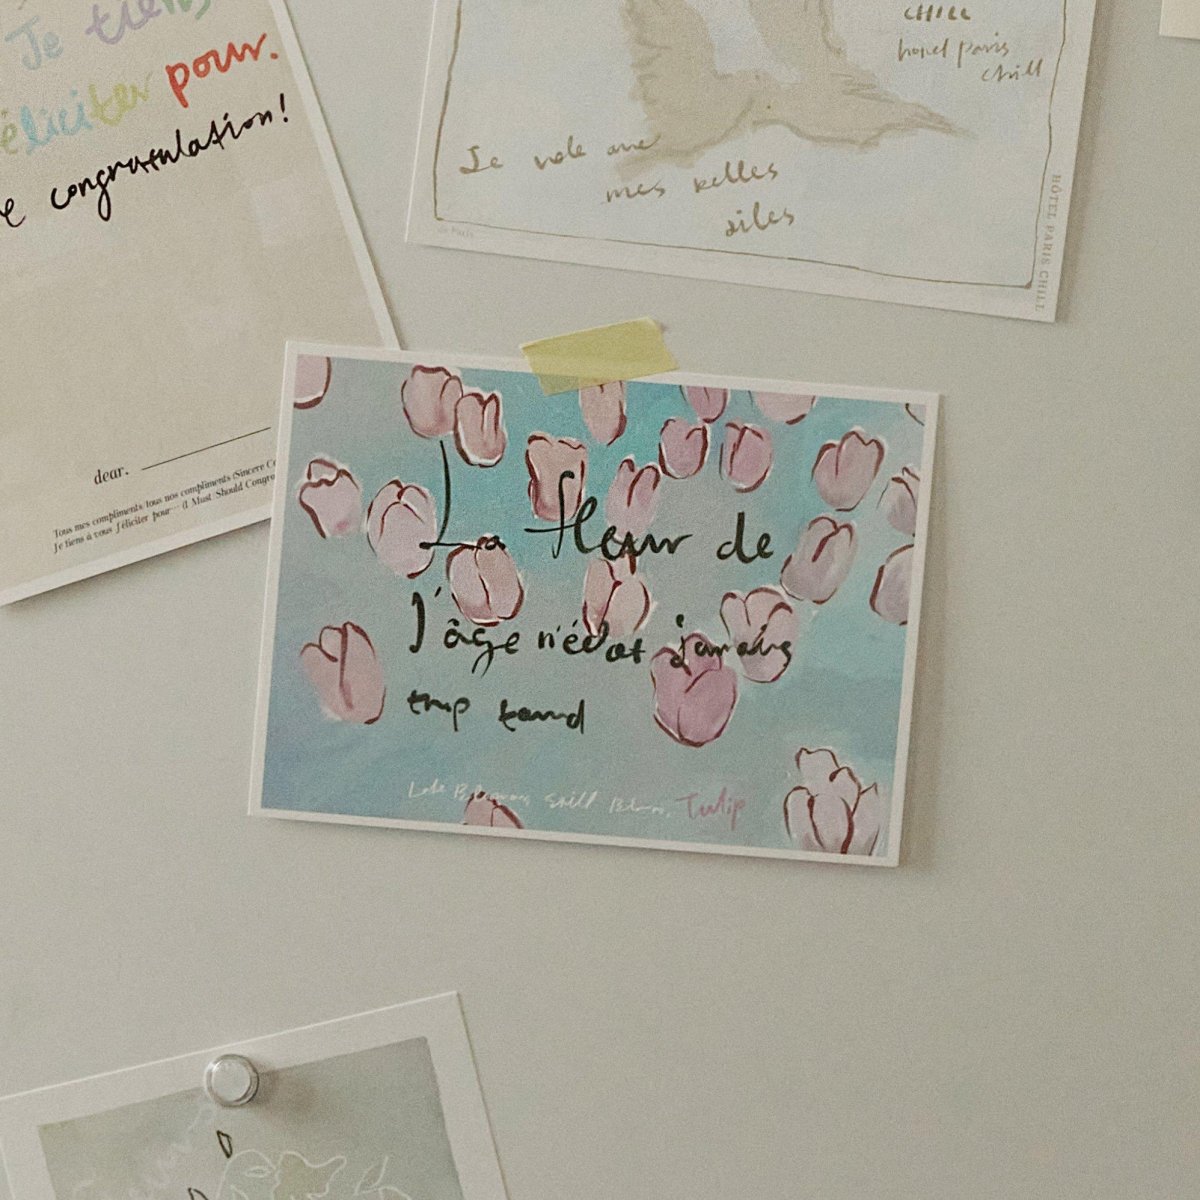 Je tiens
éliciter pour.
e congratulation!
dear.
Tous mes compliments tous nos compliments (Sincere Co
Je tiens à vous féliciter pour... (I Must Should Congra
CHILL
hotel paris
chill
Je vole avec
mes belles
ailes
de Paris
HÔTEL PARIS CHILL
La fleur de
l'âge n'éclot jamais
trop tard
Late Bloomers, Still Bloom, Tulip